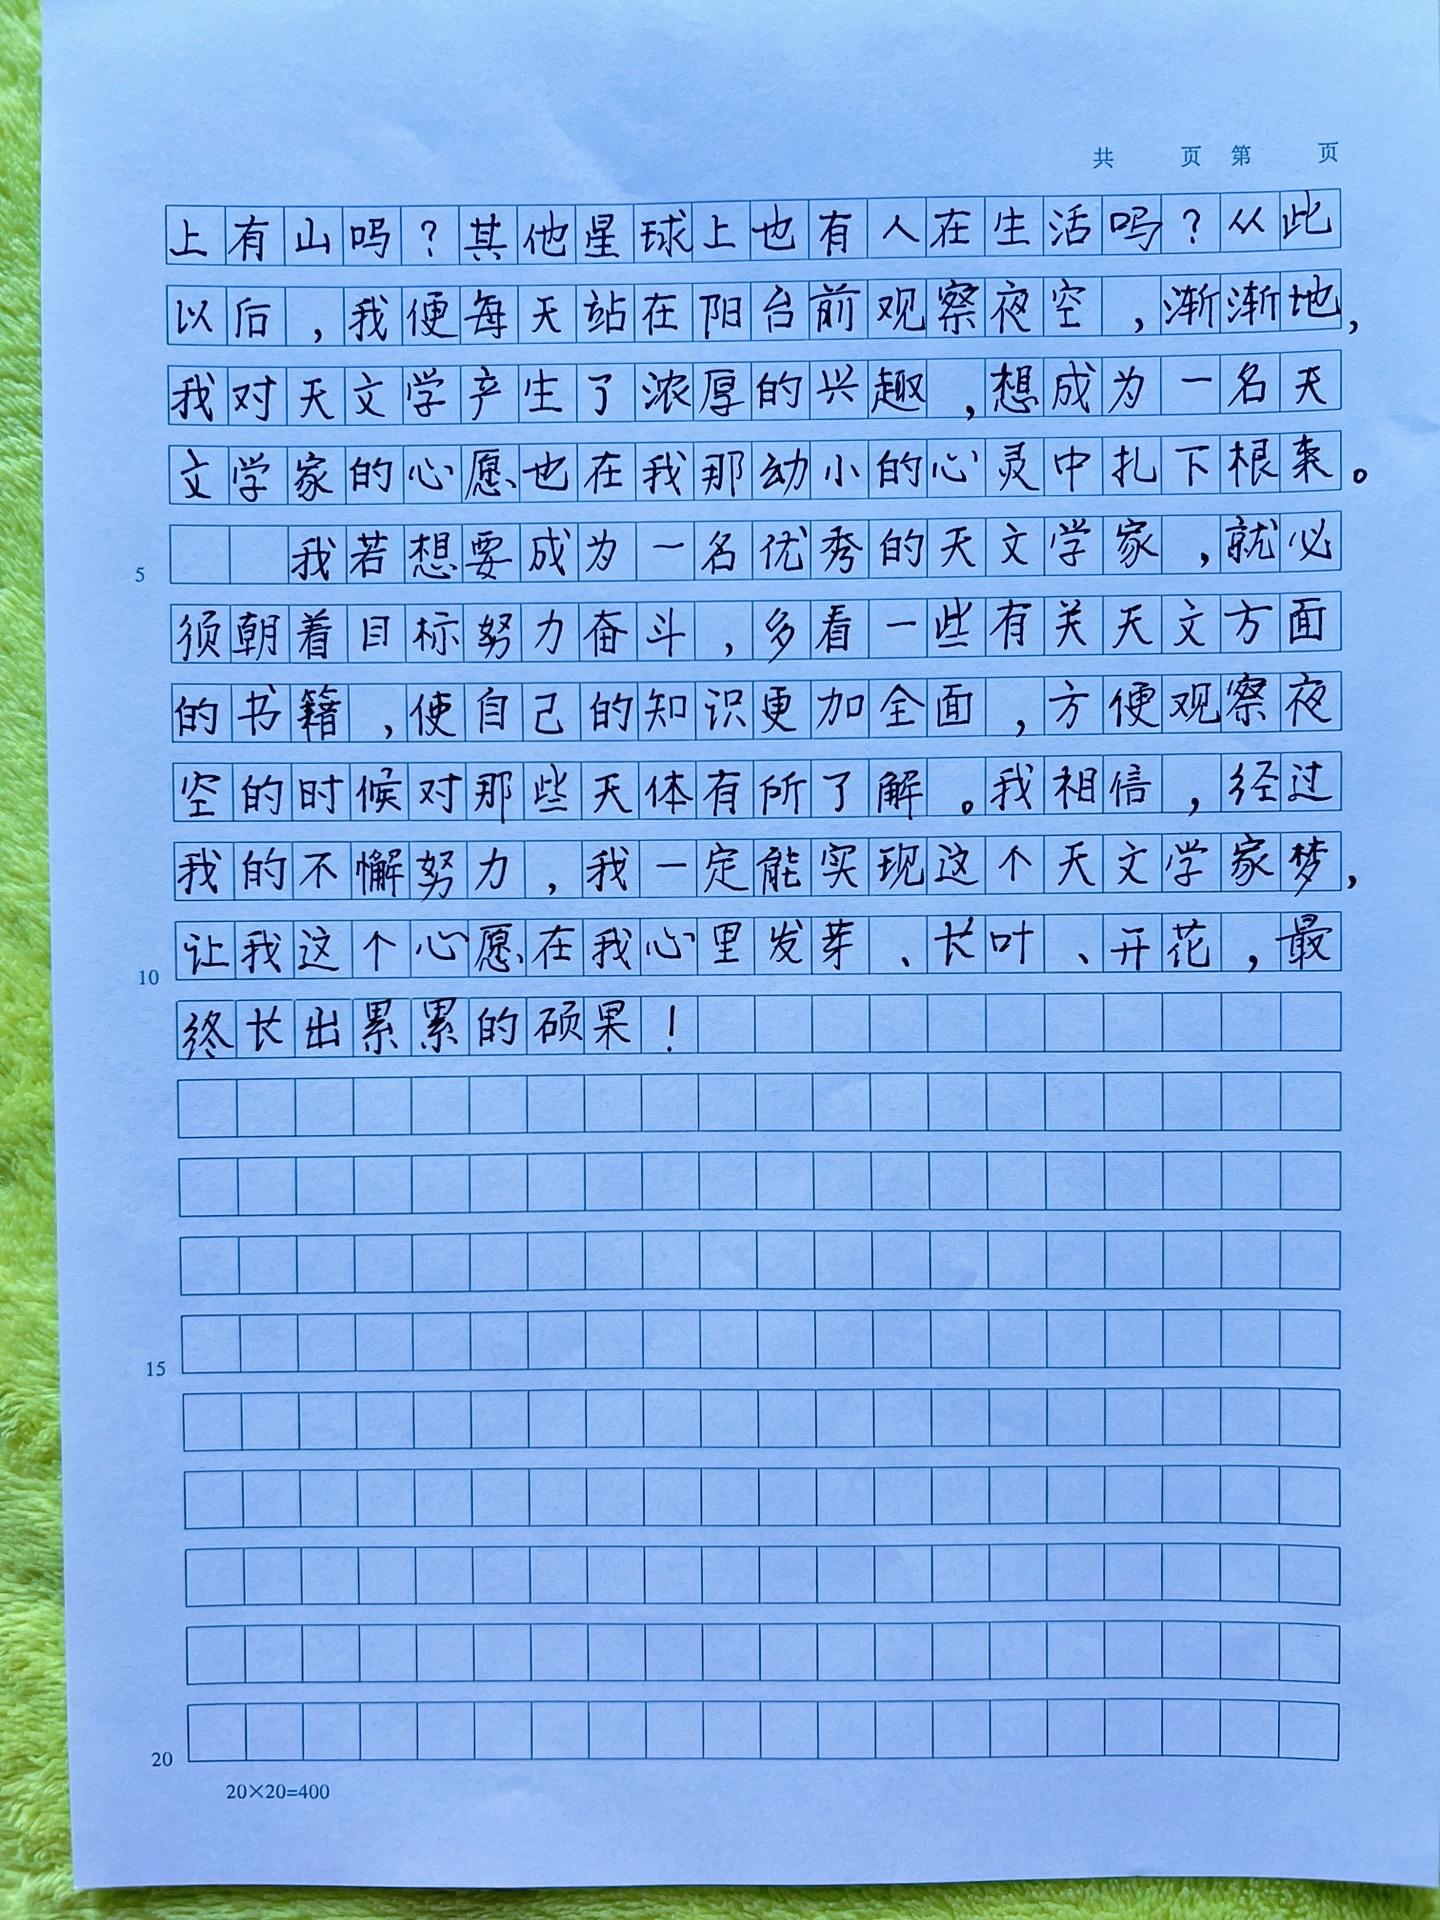 共 页 第 页
上有山吗？其他星球上也有人在生活吗？从此
以后，我便每天站在阳台前观察夜空，渐渐地，
我对天文学产生了浓厚的兴趣，想成为一名天
文学家的心愿也在我那幼小的心灵中扎下根来。
5 我若想要成为一名优秀的天文学家，就必
须朝着目标努力奋斗，多看一些有关天文方面
的书籍，使自己的知识更加全面，方便观察夜
空的时候对那些天体有所了解。我相信，经过
我的不懈努力，我一定能实现这个天文学家梦，
10 让我这个心愿在我心里发芽、长叶、开花，最
终长出累累的硕果！
15
20
20×20=400